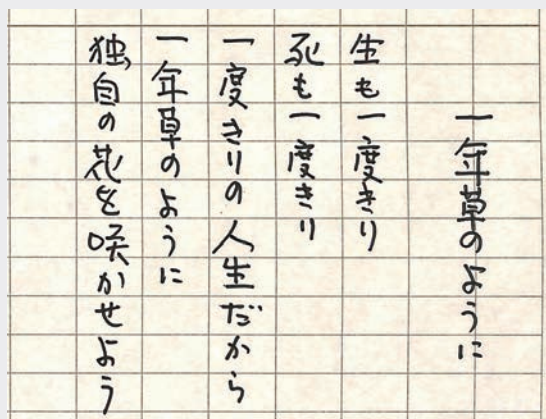 一年草のように
生も一度きり
死も一度きり
一度きりの人生だから
一年草のように
独自の花を咲かせよう